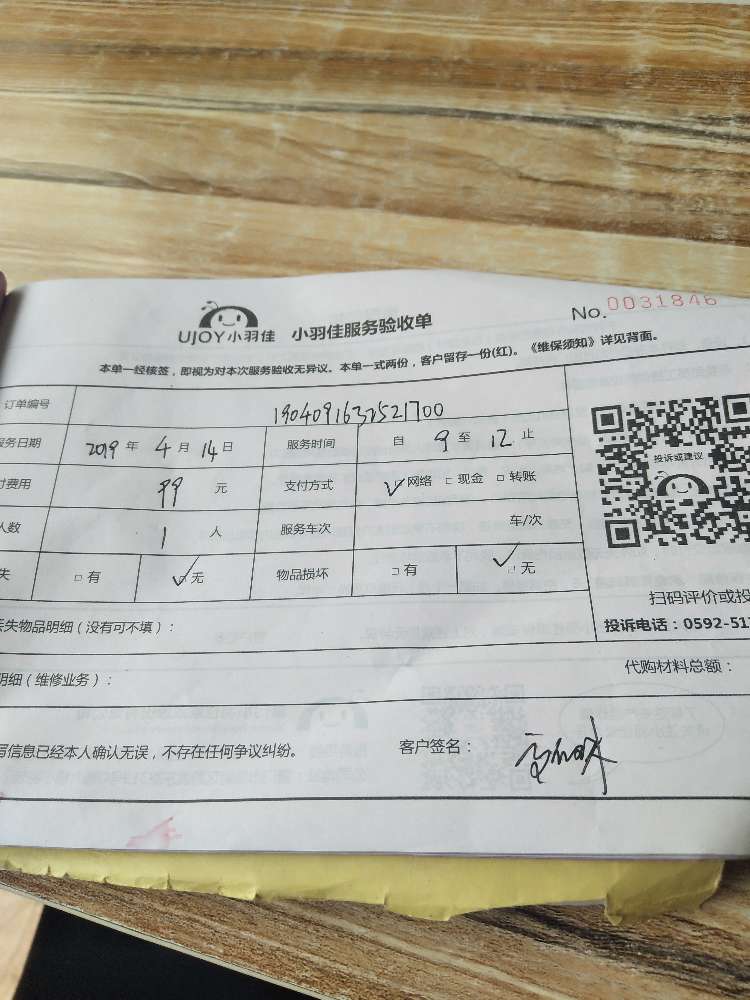 UJOY小羽佳 小羽佳服务验收单 No.0031846
本单一经核签，即视为对本次服务验收无异议。本单一式两份，客户留存一份(红)。《维保须知》详见背面。
订单编号 1904091632521700
服务日期 2019 年 4 月 14 日 服务时间 自 9 至 12 止
付费用 99 元 支付方式 ✓网络 □现金 □转账
人数 1 人 服务车次 车/次
失 □有 ✓无 物品损坏 □有 ✓无
投诉或建议
扫码评价或投
丢失物品明细（没有可不填）： 投诉电话：0592-51
明细（维修业务）： 代购材料总额：
写信息已经本人确认无误，不存在任何争议纠纷。 客户签名：